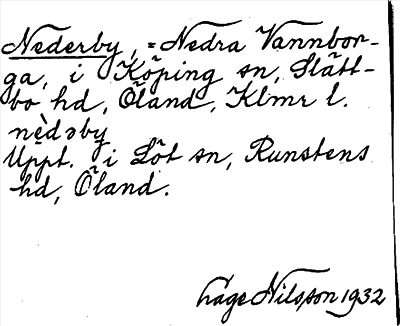 Nederby, = Nedra Vannbor-
ga, i Köping sn, Slätt-
bo hd, Öland, Klmr l.
nè̞dəby
Uppt. i Löt sn, Runstens
hd, Öland.
Åge Nilsson 1932